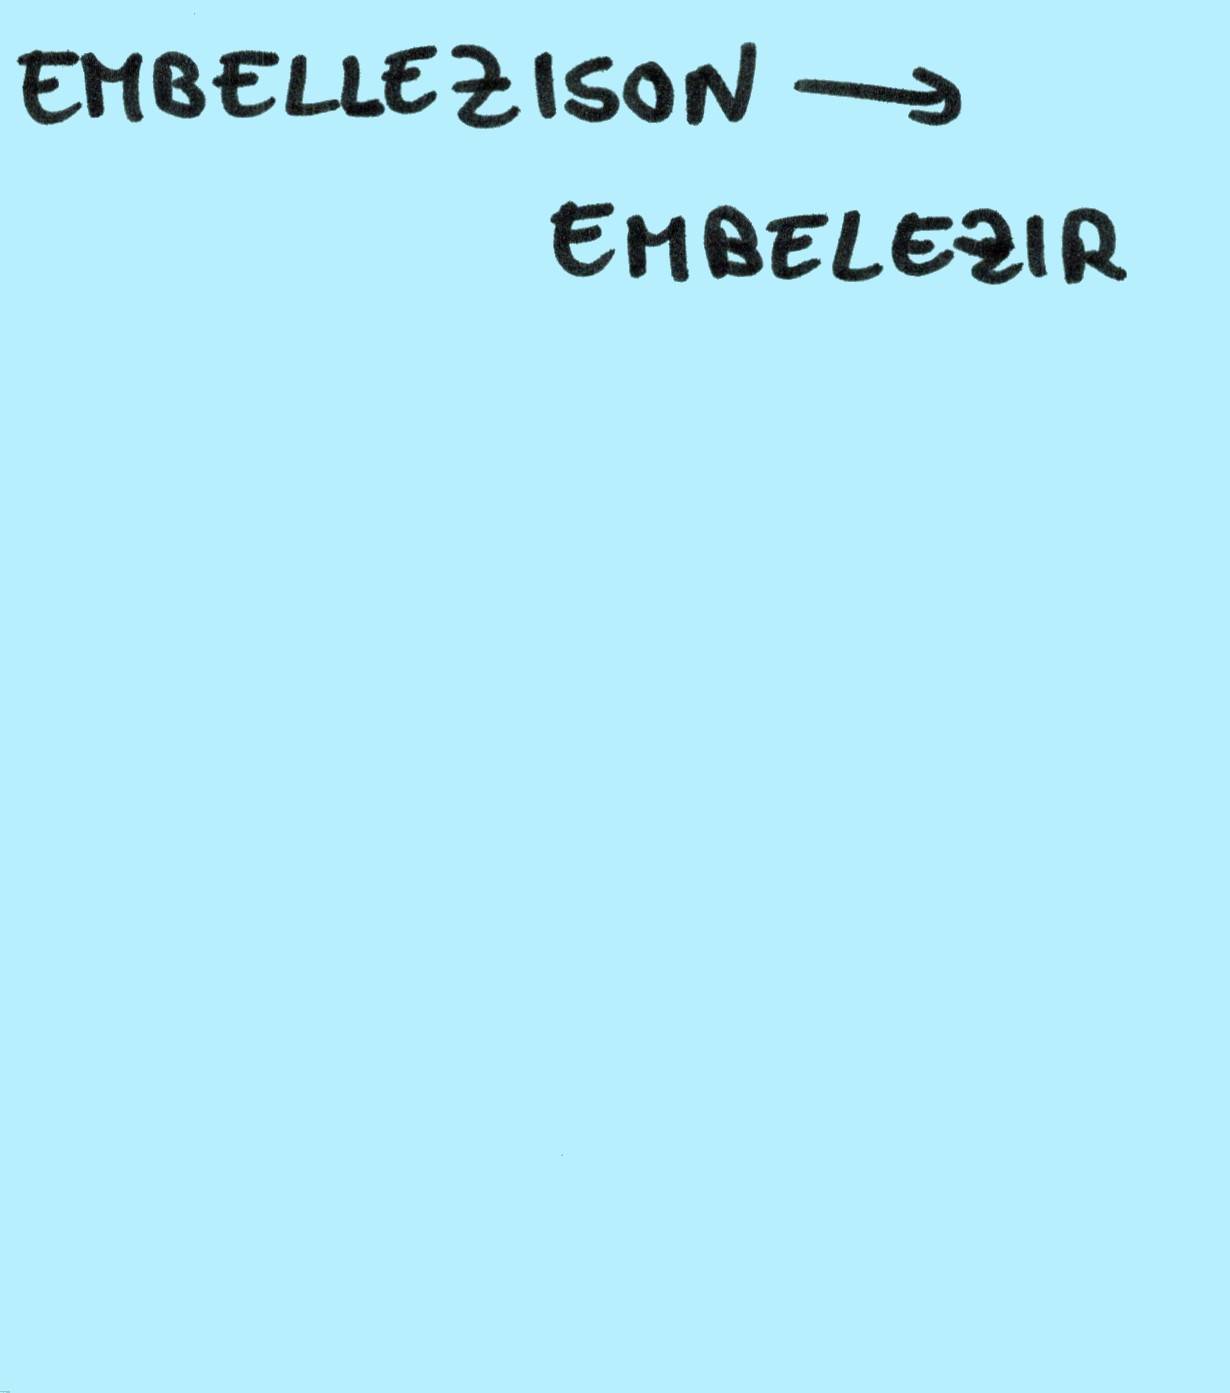 EMBELLEZISON →
EMBELEZIR